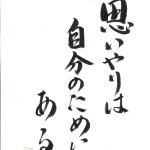 思いやりは
自分のために
ある